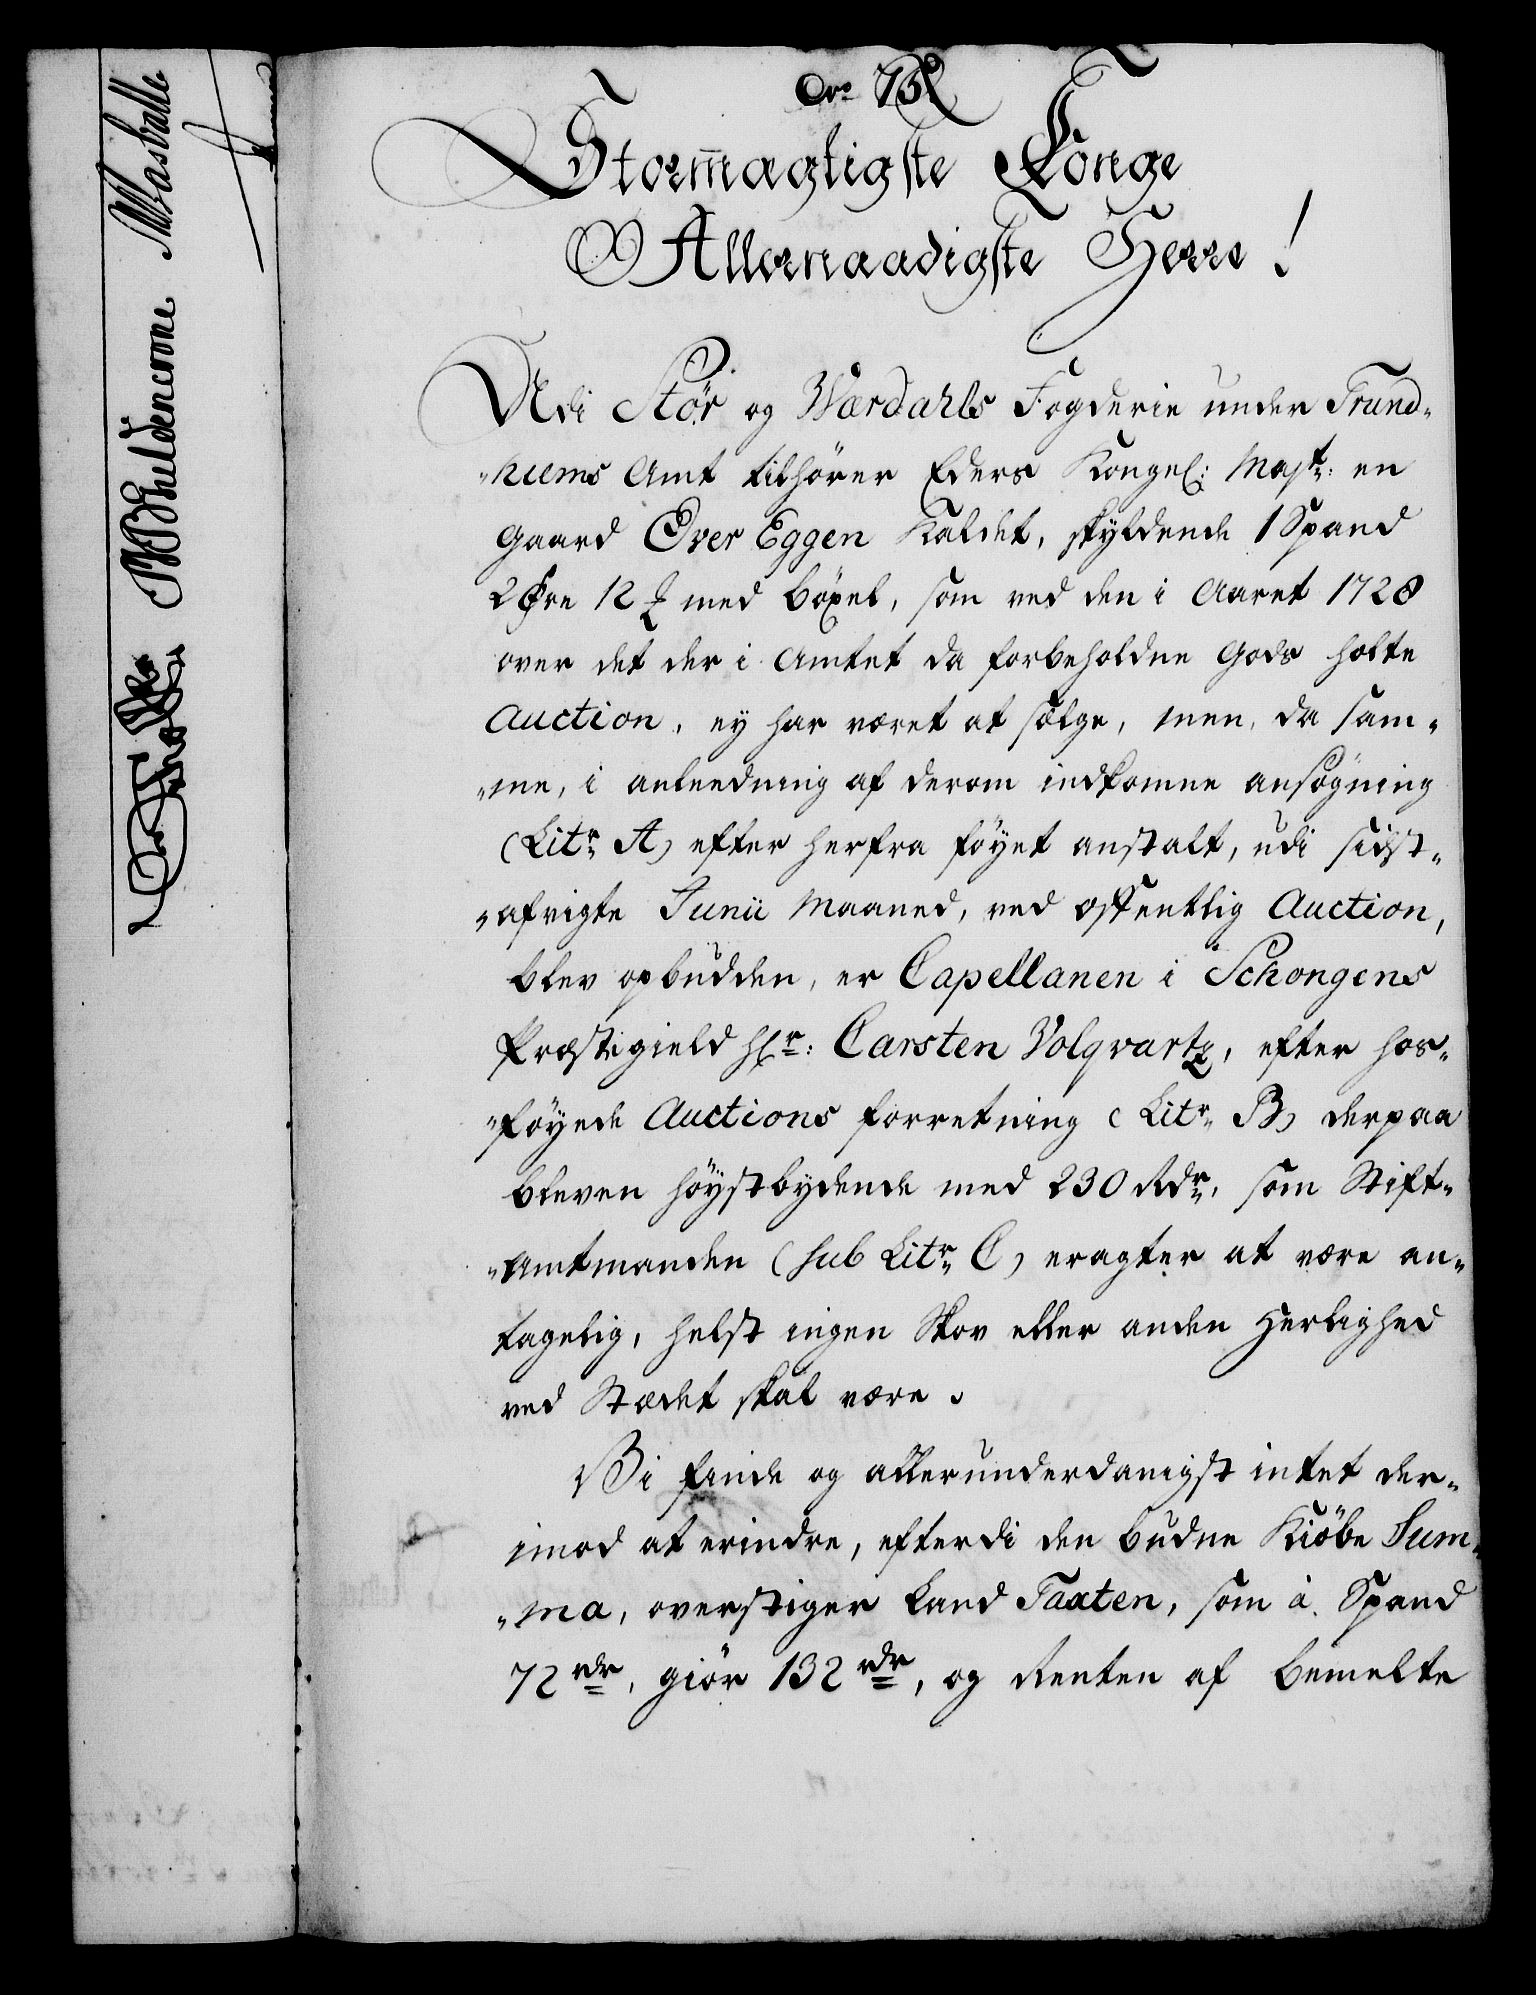 No 75
Stormægtigste Konge
Allernaadigste Herre!
Udi Stør og Værdahls Fogderie under Trund-
-hiems Amt tilhører Eders Kongel: Mayst: en
gaard Over Eggen kaldet, skyldende 1 Spand
2 Øre 12 ℔ med böxel, som ved den i Aaret 1728
over det der i Amtet da forbeholdne Gods holte
Auction, ey har været at sælge, men, da sam-
-me, i anleedning af derom indkomne ansøgning
(Litr A) efter herfra føyet anstalt, udi sidst-
-afvigte Junii Maaned, ved offentlig Auction,
blev opbudden, er Capellanen i Schongens
Præstegield Hr: Carsten Volqvartz, efter hos-
-føyede Auctions forretning (Litr B) derpaa
bleven høystbydende med 230 Rdr, som Stift-
-Amtmanden (sub Litr C) eragter at være an-
tagelig, helst ingen Skov eller anden Herlighed
ved Stædet skal være.
Vi finde og allerunderdanigst intet der-
imod at erindre, efterdi den budne Kiøbe Sum-
-ma, overstiger Land Taxten, som à Spand
72 rdr, giør 132 rdr, og Renten af bemelte